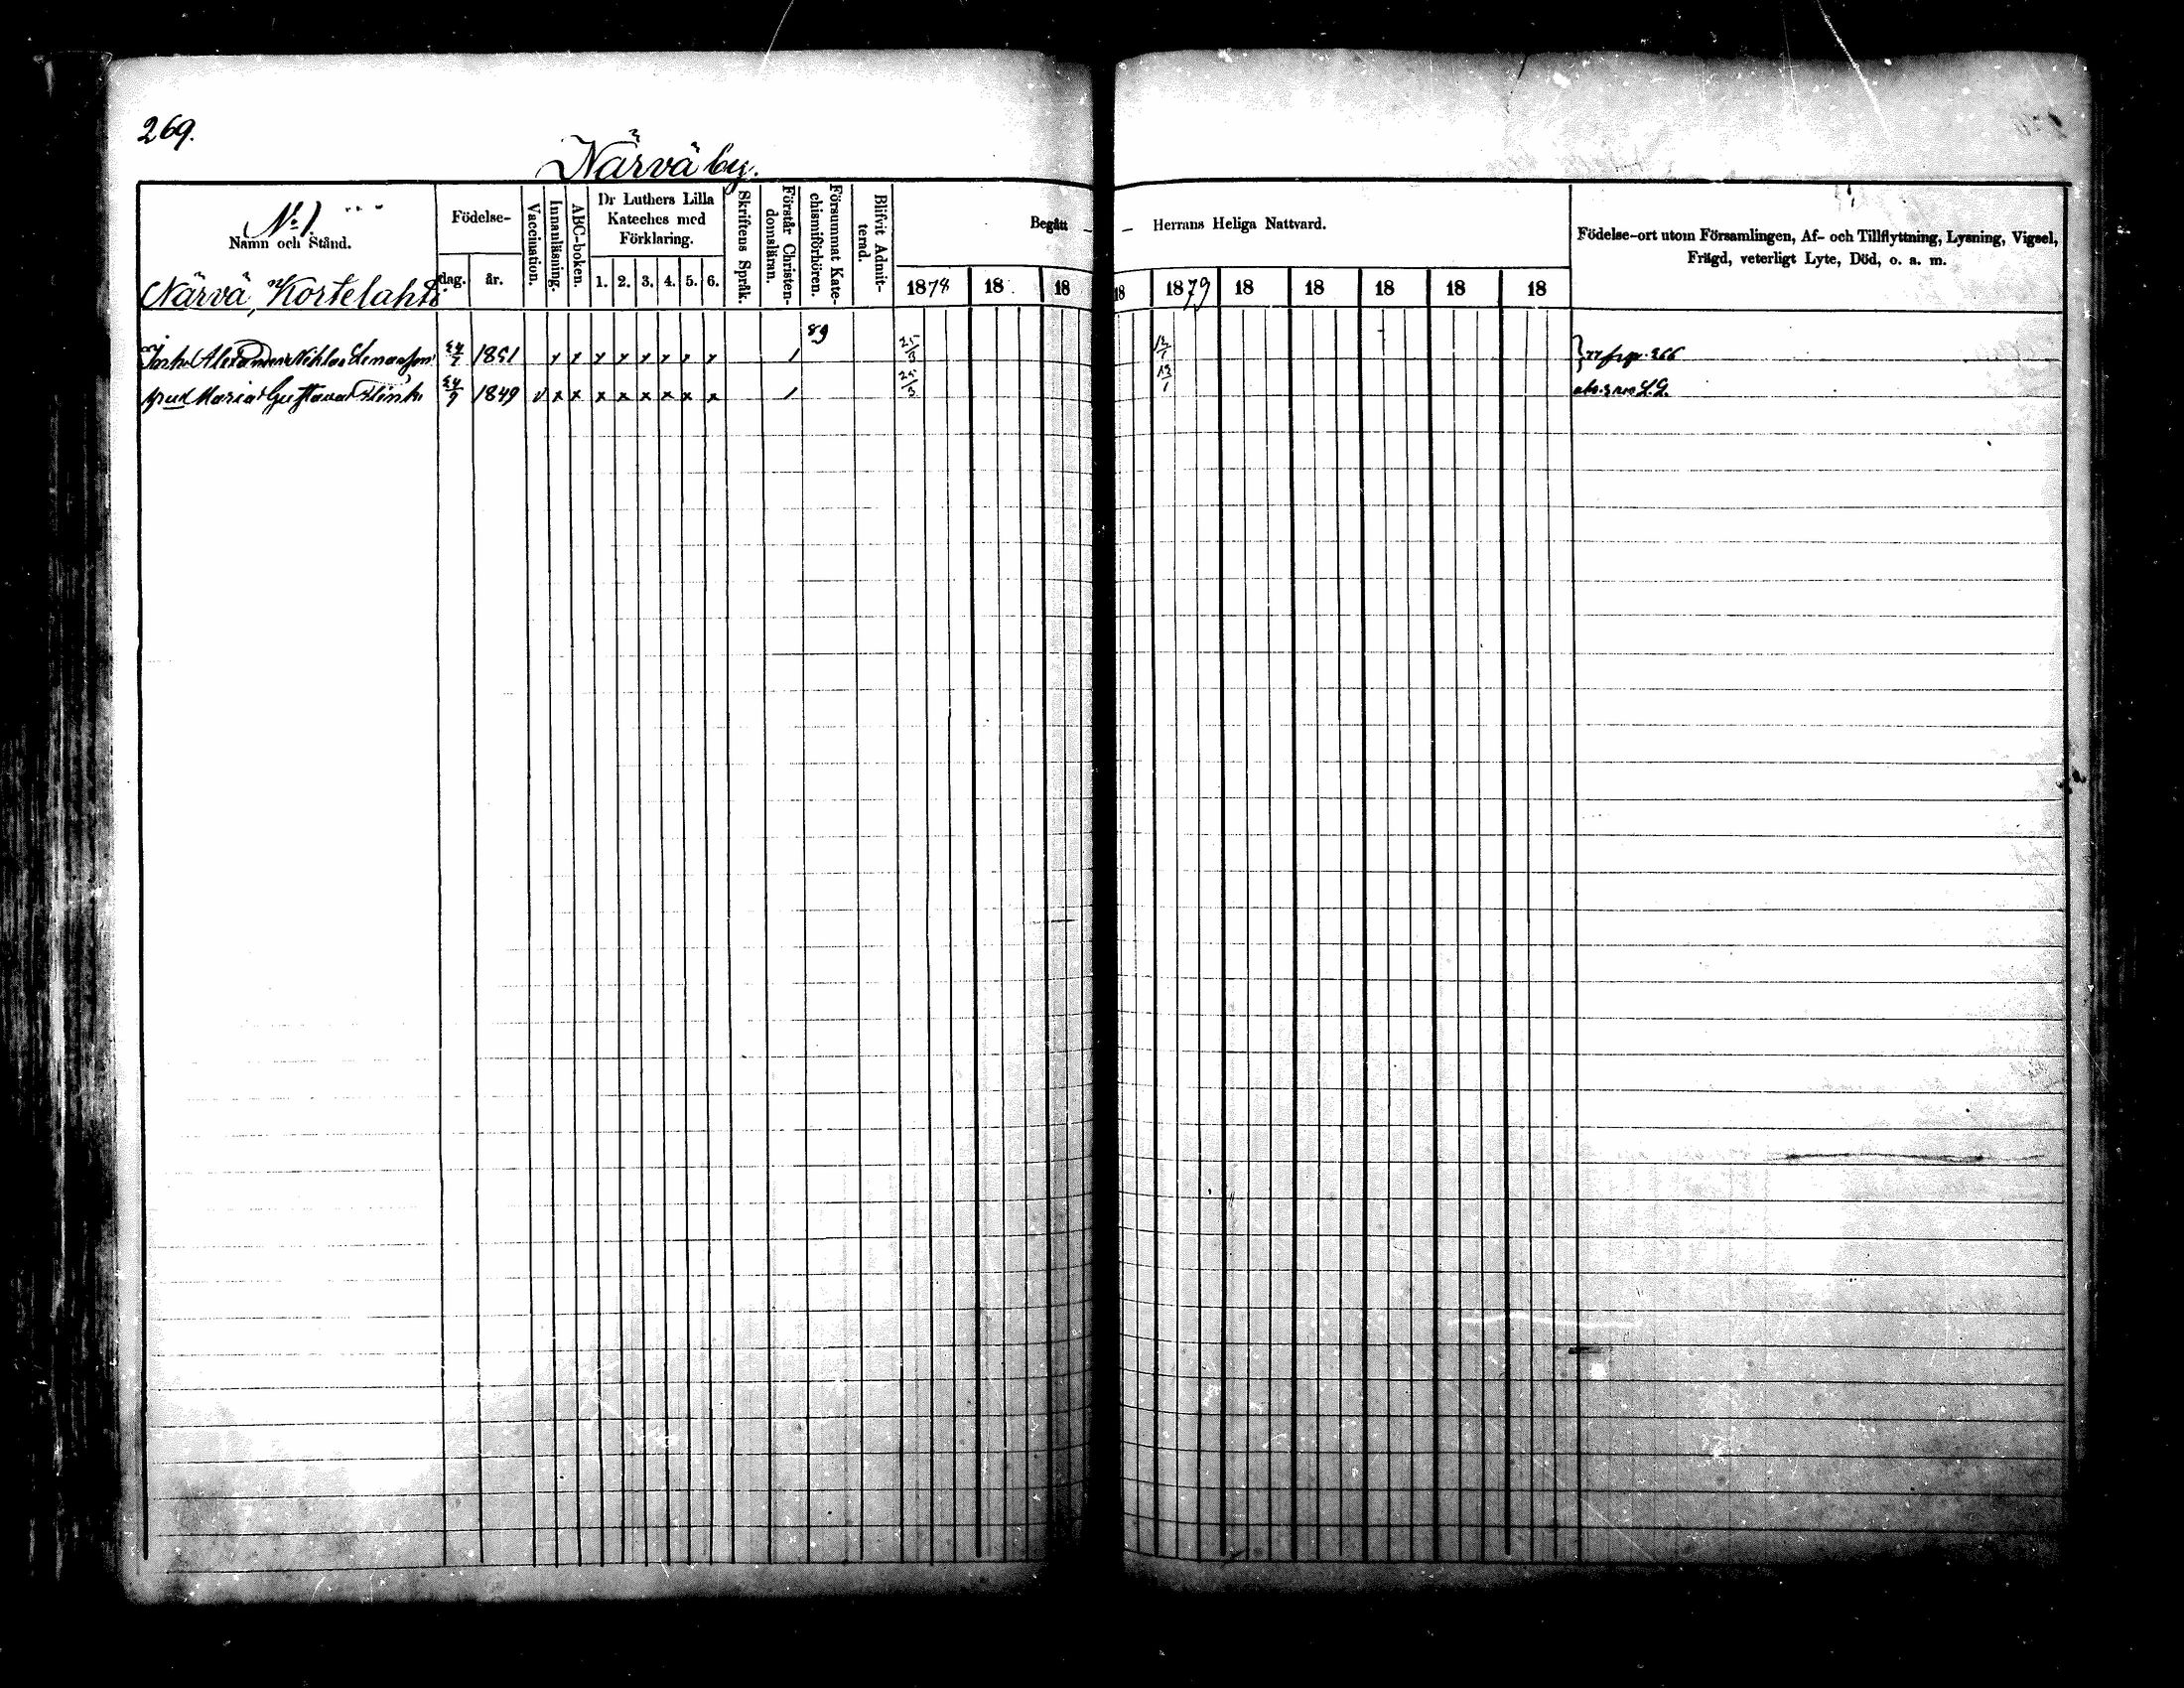 269.
Närvä by.
No 1.
Namn och Stånd.
Födelse-
dag.
år.
Vaccination.
Innanläsning.
ABC-boken.
Dr Luthers Lilla
Kateches med
Förklaring.
1. 2. 3. 4. 5. 6.
Skriftens Språk.
Förstår Christen-
domsläran.
Försummat Kate-
chismiförhören.
Blifvit Admit-
terad.
Begått
Herrans Heliga Nattvard.
1878 18 18
18 1879 18 18 18 18 18
Födelse-ort utom Församlingen, Af- och Tillflyttning, Lysning, Vigsel,
Frägd, veterligt Lyte, Död, o. a. m.
Närvä, Kortelahti
89
Alexander Niklas 24/7 1851 x x x x x x x x / 25/3 13/1 266
Maria Gustava 24/9 1849 v x x x x x x x x / 25/3 13/1